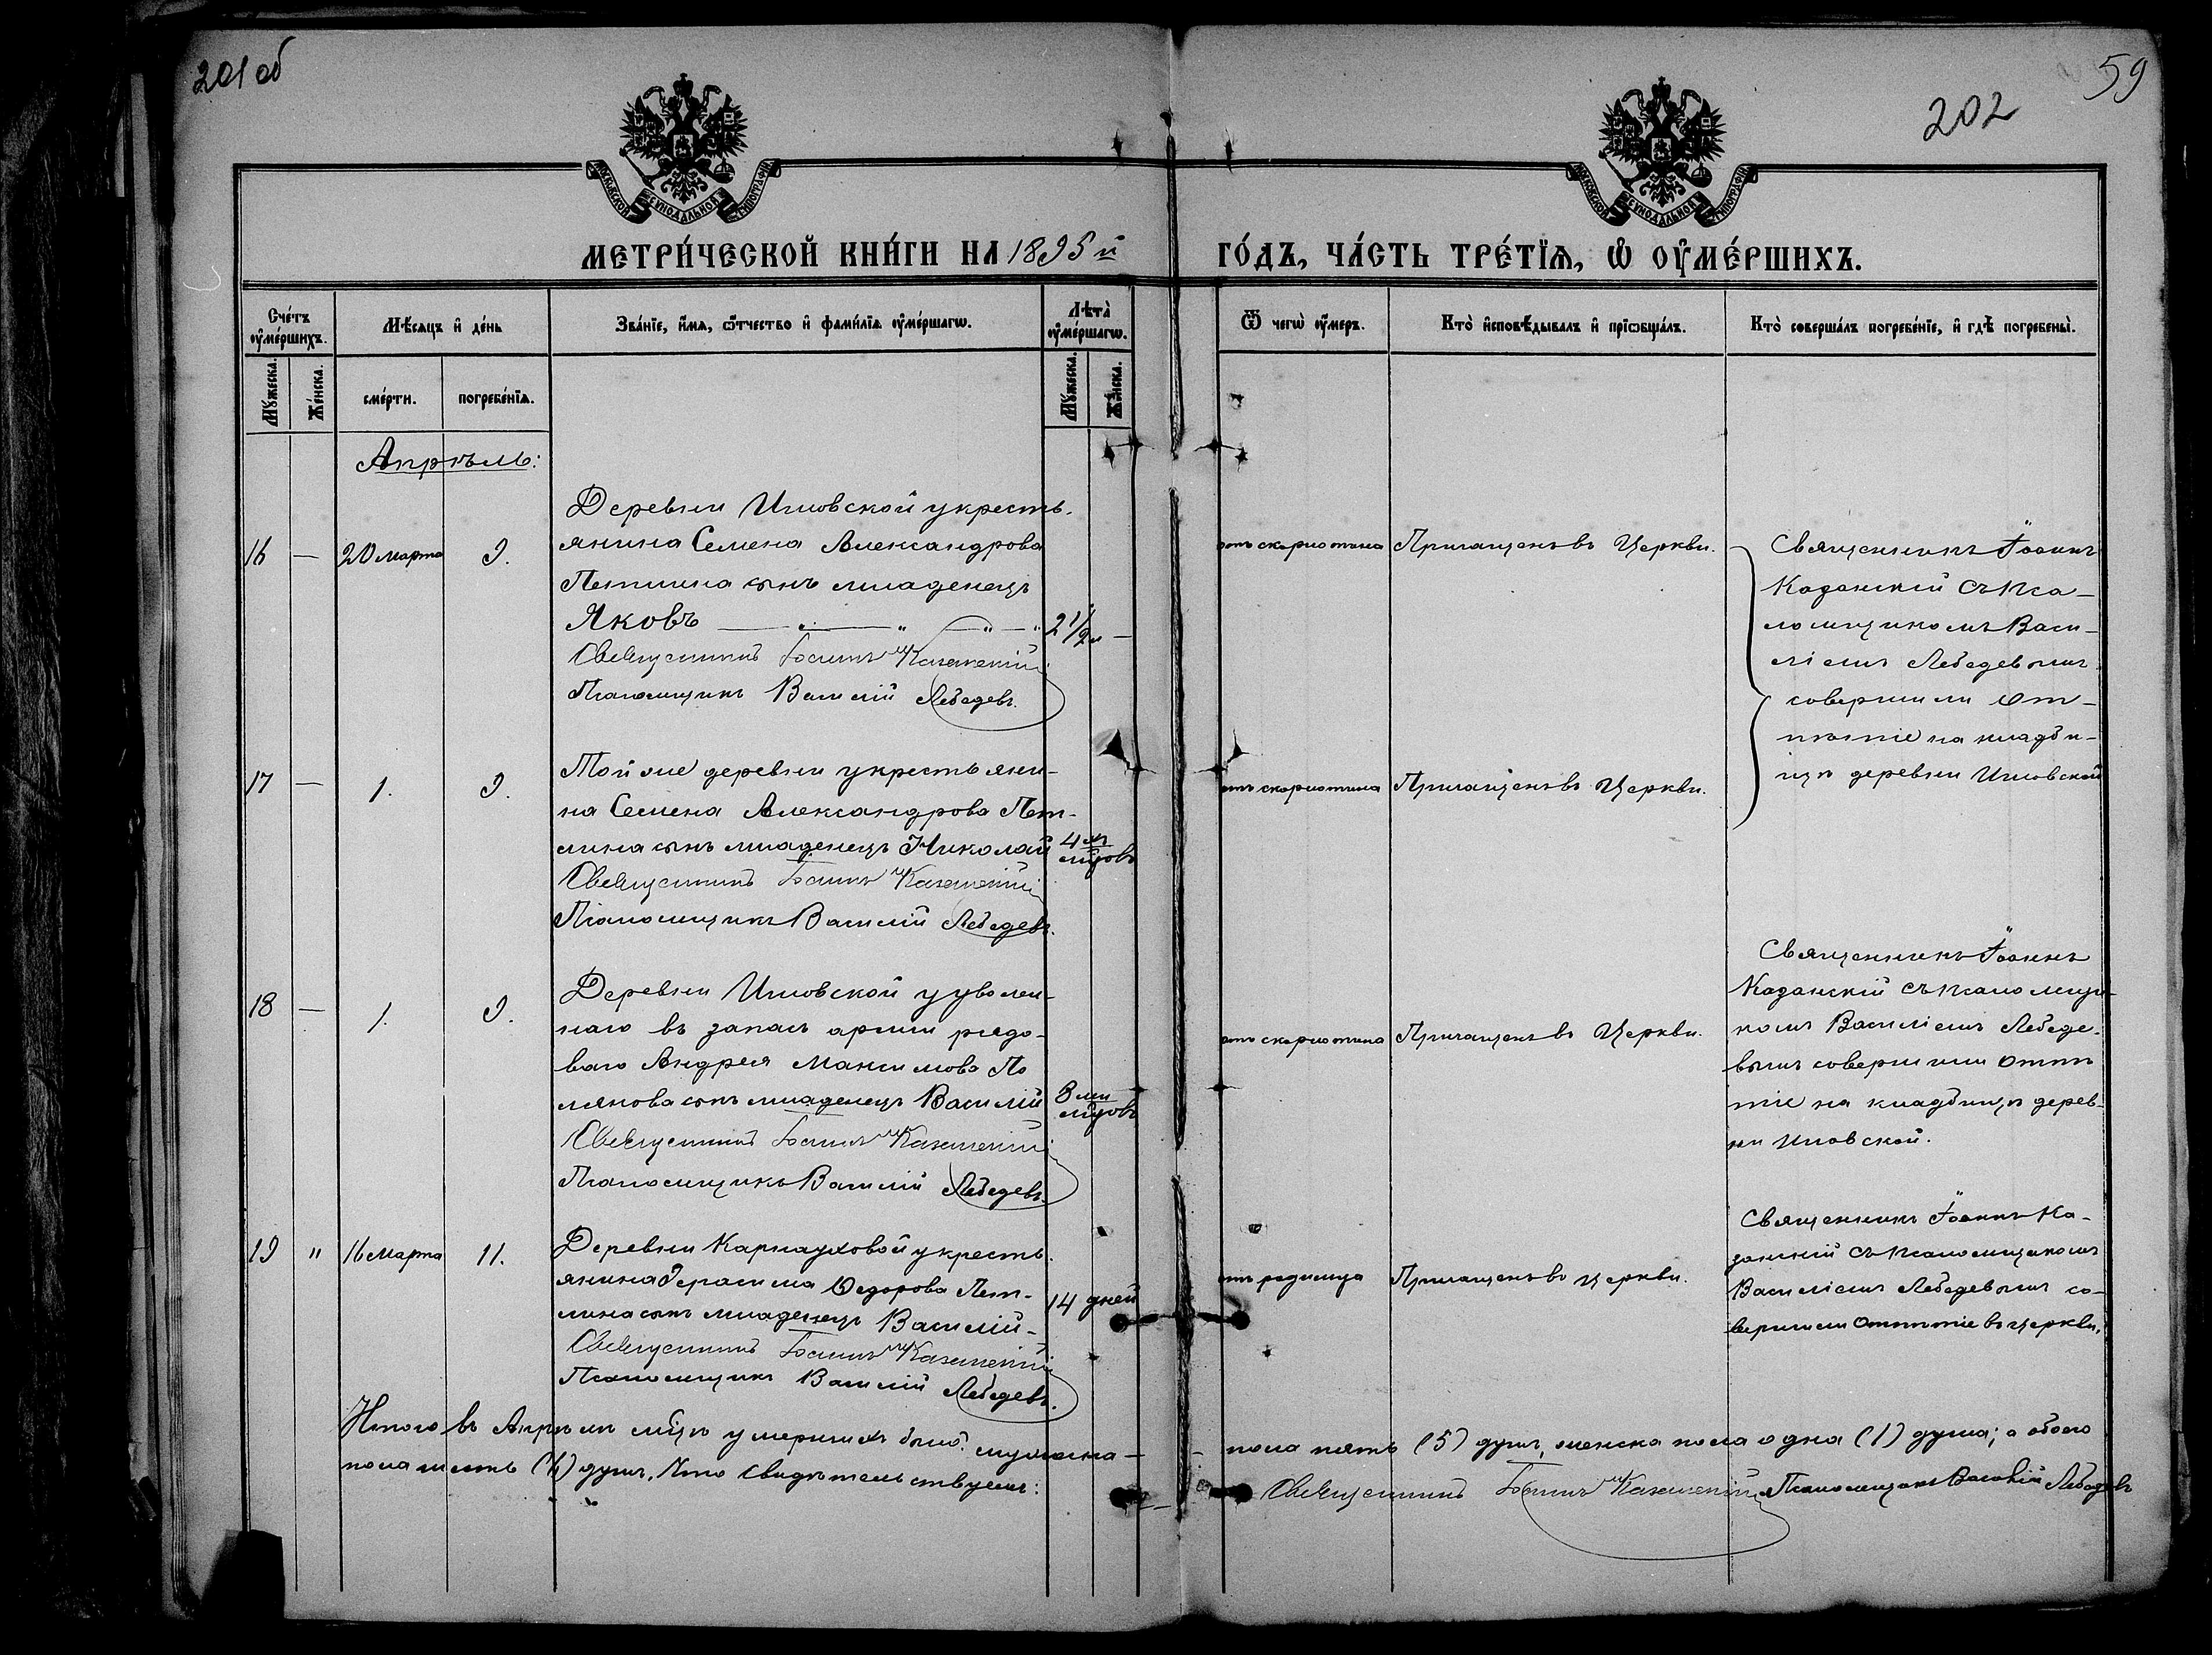 201 об
59
202
МОСКОВСКОЙ СѴНОДАЛЬНОЙ ТИПОГРАФІИ
МОСКОВСКОЙ СѴНОДАЛЬНОЙ ТИПОГРАФІИ
МЕТРИ́ЧЕСКОЙ КНИ́ГИ НА 1895 й ГО́ДЪ, ЧА́СТЬ ТРЕ́ТІѦ, Ѡ҆ ОУ҆МЕ́РШИХЪ.
Сче́тъ оу҆ме́ршихъ.
Мѣ́сѧцъ и҆ де́нь
Зва́нїе, и҆́мѧ, ѻ҆́тчество и҆ фами́лїѧ оу҆ме́ршагѡ.
Лѣта̀ оу҆ме́ршагѡ.
Ѿ чегѡ̀ оу҆́меръ.
Кто̀ и҆сповѣ́дывалъ и҆ прїѡбща́лъ.
Кто̀ соверша́лъ погребе́нїе, и҆ гдѣ̀ погребены̀.
Мꙋ́жеска.
Же́нска.
сме́рти.
погребе́нїѧ.
Мꙋ́жеска.
Же́нска.
Апрѣль:
16 — 20 марта 9.
Деревни Имовской у кресть-
янина Семена Александрова
Петлина сынъ младенецъ
Яковъ 2 1/2 —
Священникъ Іоаннъ Казанскій
Псаломщикъ Василій Лебедевъ.
отъ скарлотина
Причащенъ въ Церкви.
Священникъ Іоаннъ
Казанскій съ Пса-
ломщикомъ Васи-
ліемъ Лебедевымъ
совершили от-
пѣтіе на кладби-
щѣ деревни Имовской
17 — 1. 9.
Той же деревни у крестьяни-
на Семена Александрова Пет-
лина сынъ младенецъ Николай 4 хъ мцовъ
Священникъ Іоаннъ Казанскій
Псаломщикъ Василій Лебедевъ.
отъ скарлотина
Причащенъ въ Церкви.
18 — 1. 9.
Деревни Имовской у уволен-
наго въ запасъ арміи рядо-
ваго Андрея Максимова По
лякова сынъ младенецъ Василій 8 ми мцовъ
Священникъ Іоаннъ Казанскій
Псаломщикъ Василій Лебедевъ.
отъ скарлотина
Причащенъ въ Церкви.
Священникъ Іоаннъ
Казанскій съ псаломщи-
комъ Василіемъ Лебеде-
вымъ совершили отпѣ
тіе на кладбищѣ дерев-
ни Имовской.
19 " 16 Марта 11.
Деревни Карнауховой у кресть-
янина Герасима Ѳедорова Пет-
лина сынъ младенецъ Василій- 14 дней
Священникъ Іоаннъ Казанскій
Псаломщикъ Василій Лебедевъ.
отъ родимца
Причащенъ въ церкви.
Священникъ Іоаннъ Ка-
занскій съ псаломщикомъ
Василіемъ Лебедевымъ со-
вершили отпѣтіе въ церкви.
Итого въ Апрѣлѣ мцѣ умершихъ было: мужеска- пола пять (5) душъ, женска пола одна (1) душа; а обоего
пола шесть (6) душъ. Что свидѣтельствуемъ: Священникъ Іоаннъ Казанскій Псаломщикъ Василій Лебедевъ